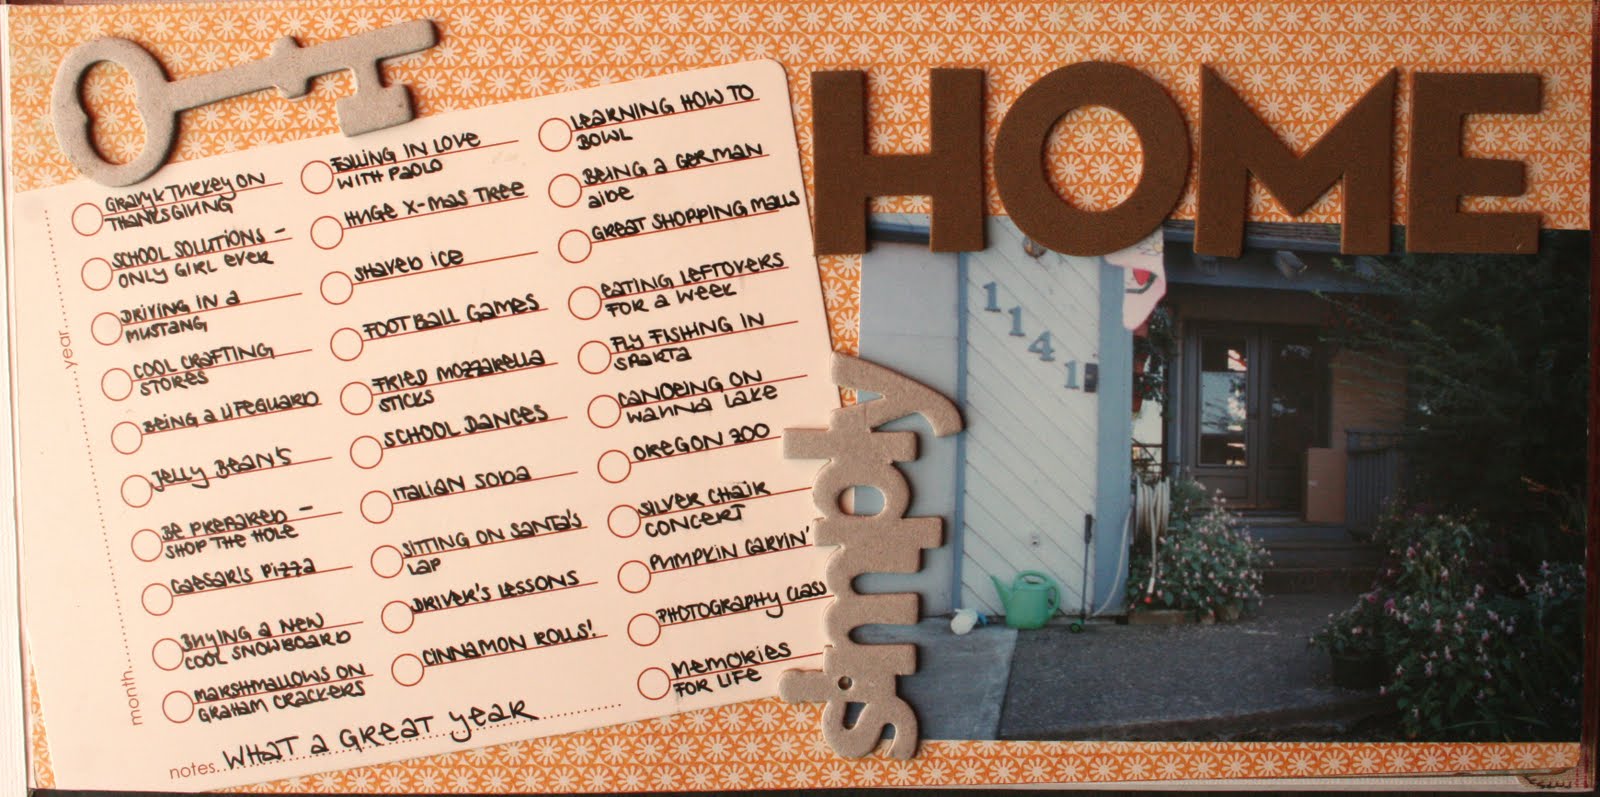 HOME
simply
GRAVY & TURKEY ON
THANKSGIVING
SCHOOL SOLUTIONS -
ONLY GIRL EVER
DRIVING IN A
MUSTANG
COOL CRAFTING
STORES
BEING A LIFEGUARD
JELLY BEAN'S
BE PREPARED -
SHOP THE HOLE
CAESAR'S PIZZA
BUYING A NEW
COOL SNOWBOARD
MARSHMALLOWS ON
GRAHAM CRACKERS
FALLING IN LOVE
WITH PAOLO
HUGE X-MAS TREE
SHAVED ICE
FOOTBALL GAMES
FRIED MOZZARELLA
STICKS
SCHOOL DANCES
ITALIAN SODA
SITTING ON SANTA'S
LAP
DRIVER'S LESSONS
CINNAMON ROLLS!
LEARNING HOW TO
BOWL
BEING A GERMAN
AIDE
GREAT SHOPPING MALLS
EATING LEFTOVERS
FOR A WEEK
FLY FISHING IN
SPARTA
CANOEING ON
WANNA LAKE
OREGON ZOO
SILVER CHAIR
CONCERT
PUMPKIN CARVIN'
PHOTOGRAPHY CLASS
MEMORIES
FOR LIFE
month
year
notes WHAT A GREAT YEAR
11141